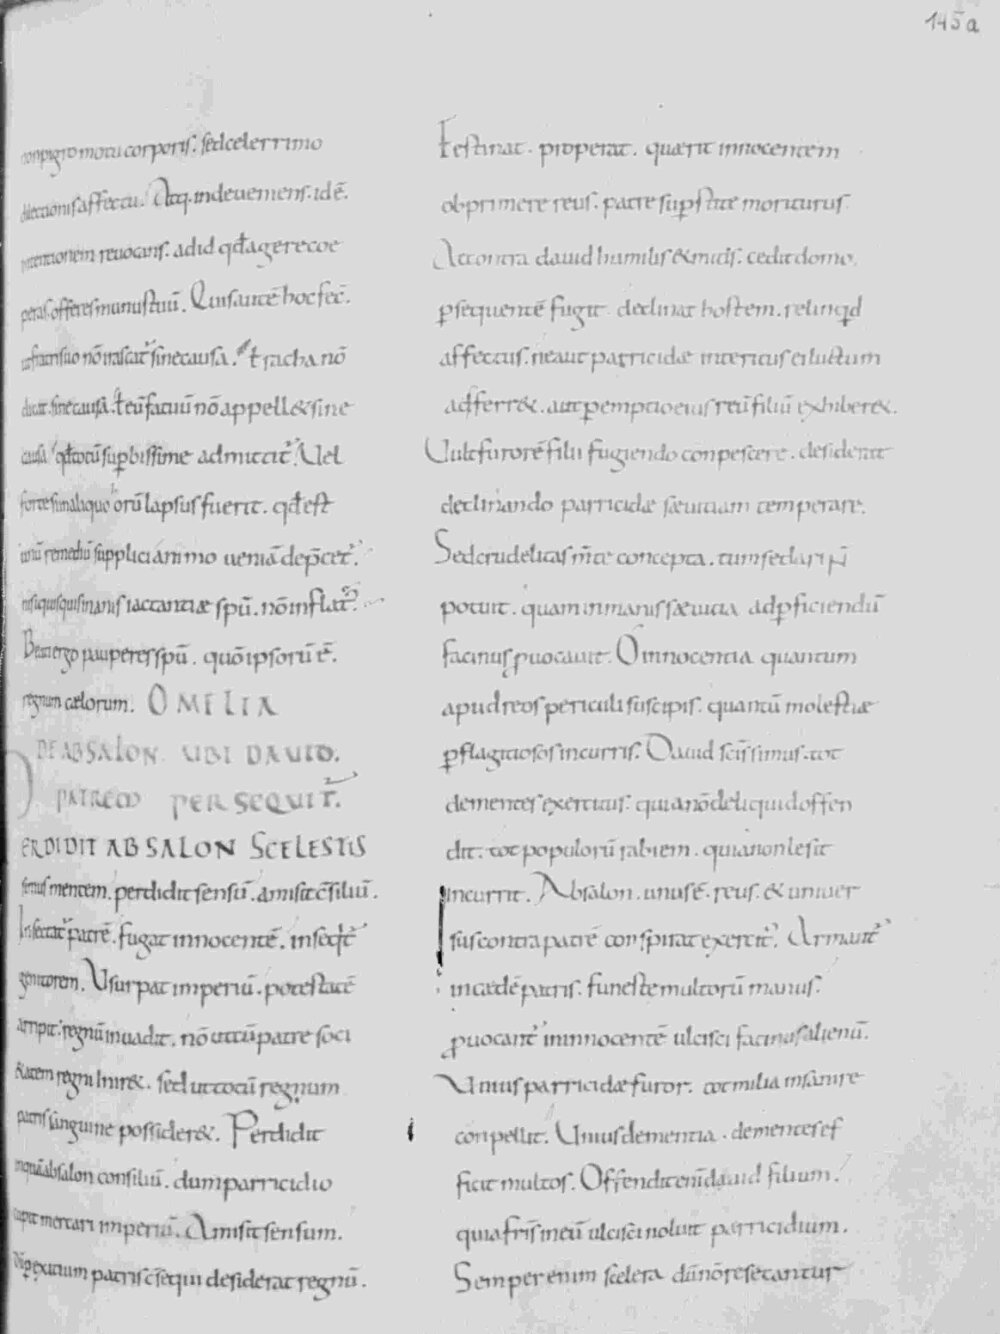 145a
non pigro motu corporis. sed celerrimo
dilectionis affectu. Atq. inde veniens. idē.
intentionem revocans. ad id qđ agere coe
peras. offeres munus tuū. Quis autē hoc fec̄.
ut fratri suo nō irascat̄ sine causa. Et racha nō
dicat sine causa. Et eū fatuū nō appell& sine
causa qđ totū supbissime admittit̄. Vel
forte si in aliquo horū lapsus fuerit. qđ est
unū remediū supplici animo veniā dep̄cet̄.
nisi quisquis inanis iactantiæ spū. nō inflat̄.
Beati ergo pauperes spū. quō ipsorū ē.
regnum cælorum. OMELIA
DE ABSALON UBI DAVID.
PATREM PERSEQUIT̄.
PERDIDIT ABSALON SCELESTIS
simus mentem. perdidit sensū. amisit c̄siliū.
Insectat̄ patrē. fugat innocentē. inseqt̄
genitorem. Usurpat imperiū. potestatē
arripit. regnū invadit. nō ut cū patre soci
&atem regni hir&. sed ut totū regnum
patris sanguine possider&. Perdidit
inquā absalon consiliū. dum parricidio
cupit mercari imperiū. Amisit sensum.
dū p exitium patris c̄sequi desiderat regnū.
Festinat. properat. quærit innocentem
obprimere reus. patre supstite moriturus.
At contra david humilis & mitis. cedit domo.
psequentē fugit. declinat hostem. relinqd
affectus. ne aut parricidæ interitus ei luctum
adferr&. aut pemptio eius reū filiū exhiber&.
Vult furorē filii fugiendo conpescere. desiderat
declinando parricidæ sævitiam temperare.
Sed crudelitas m̄te concepta. tum sedari n̄
potuit. quam inmanis sævitia ad pficiendū
facinus pvocavit. O innocentia quantum
apud reos periculi suscipis. quantū molestiæ
p flagitiosos incurris. David sc̄issimus. tot
dementes exercitus. quia nō deliquid offen
dit. tot populorū rabiem. quia non lesit
incurrit. Absalon. unus ē. reus. & univer
sus contra patrē conspirat exercit̄. Armant̄
in cædē patris. funeste multorū manus.
pvocant̄ in innocentē ulcisci facinus alienū.
Unius parricidæ furor. tot milia insanire
conpellit. Unius dementia. dementes ef
ficit multos. Offendit enī david filium.
quia fr̄is in eū ulcisci noluit parricidium.
Semper enim scelera dū nō resecantur